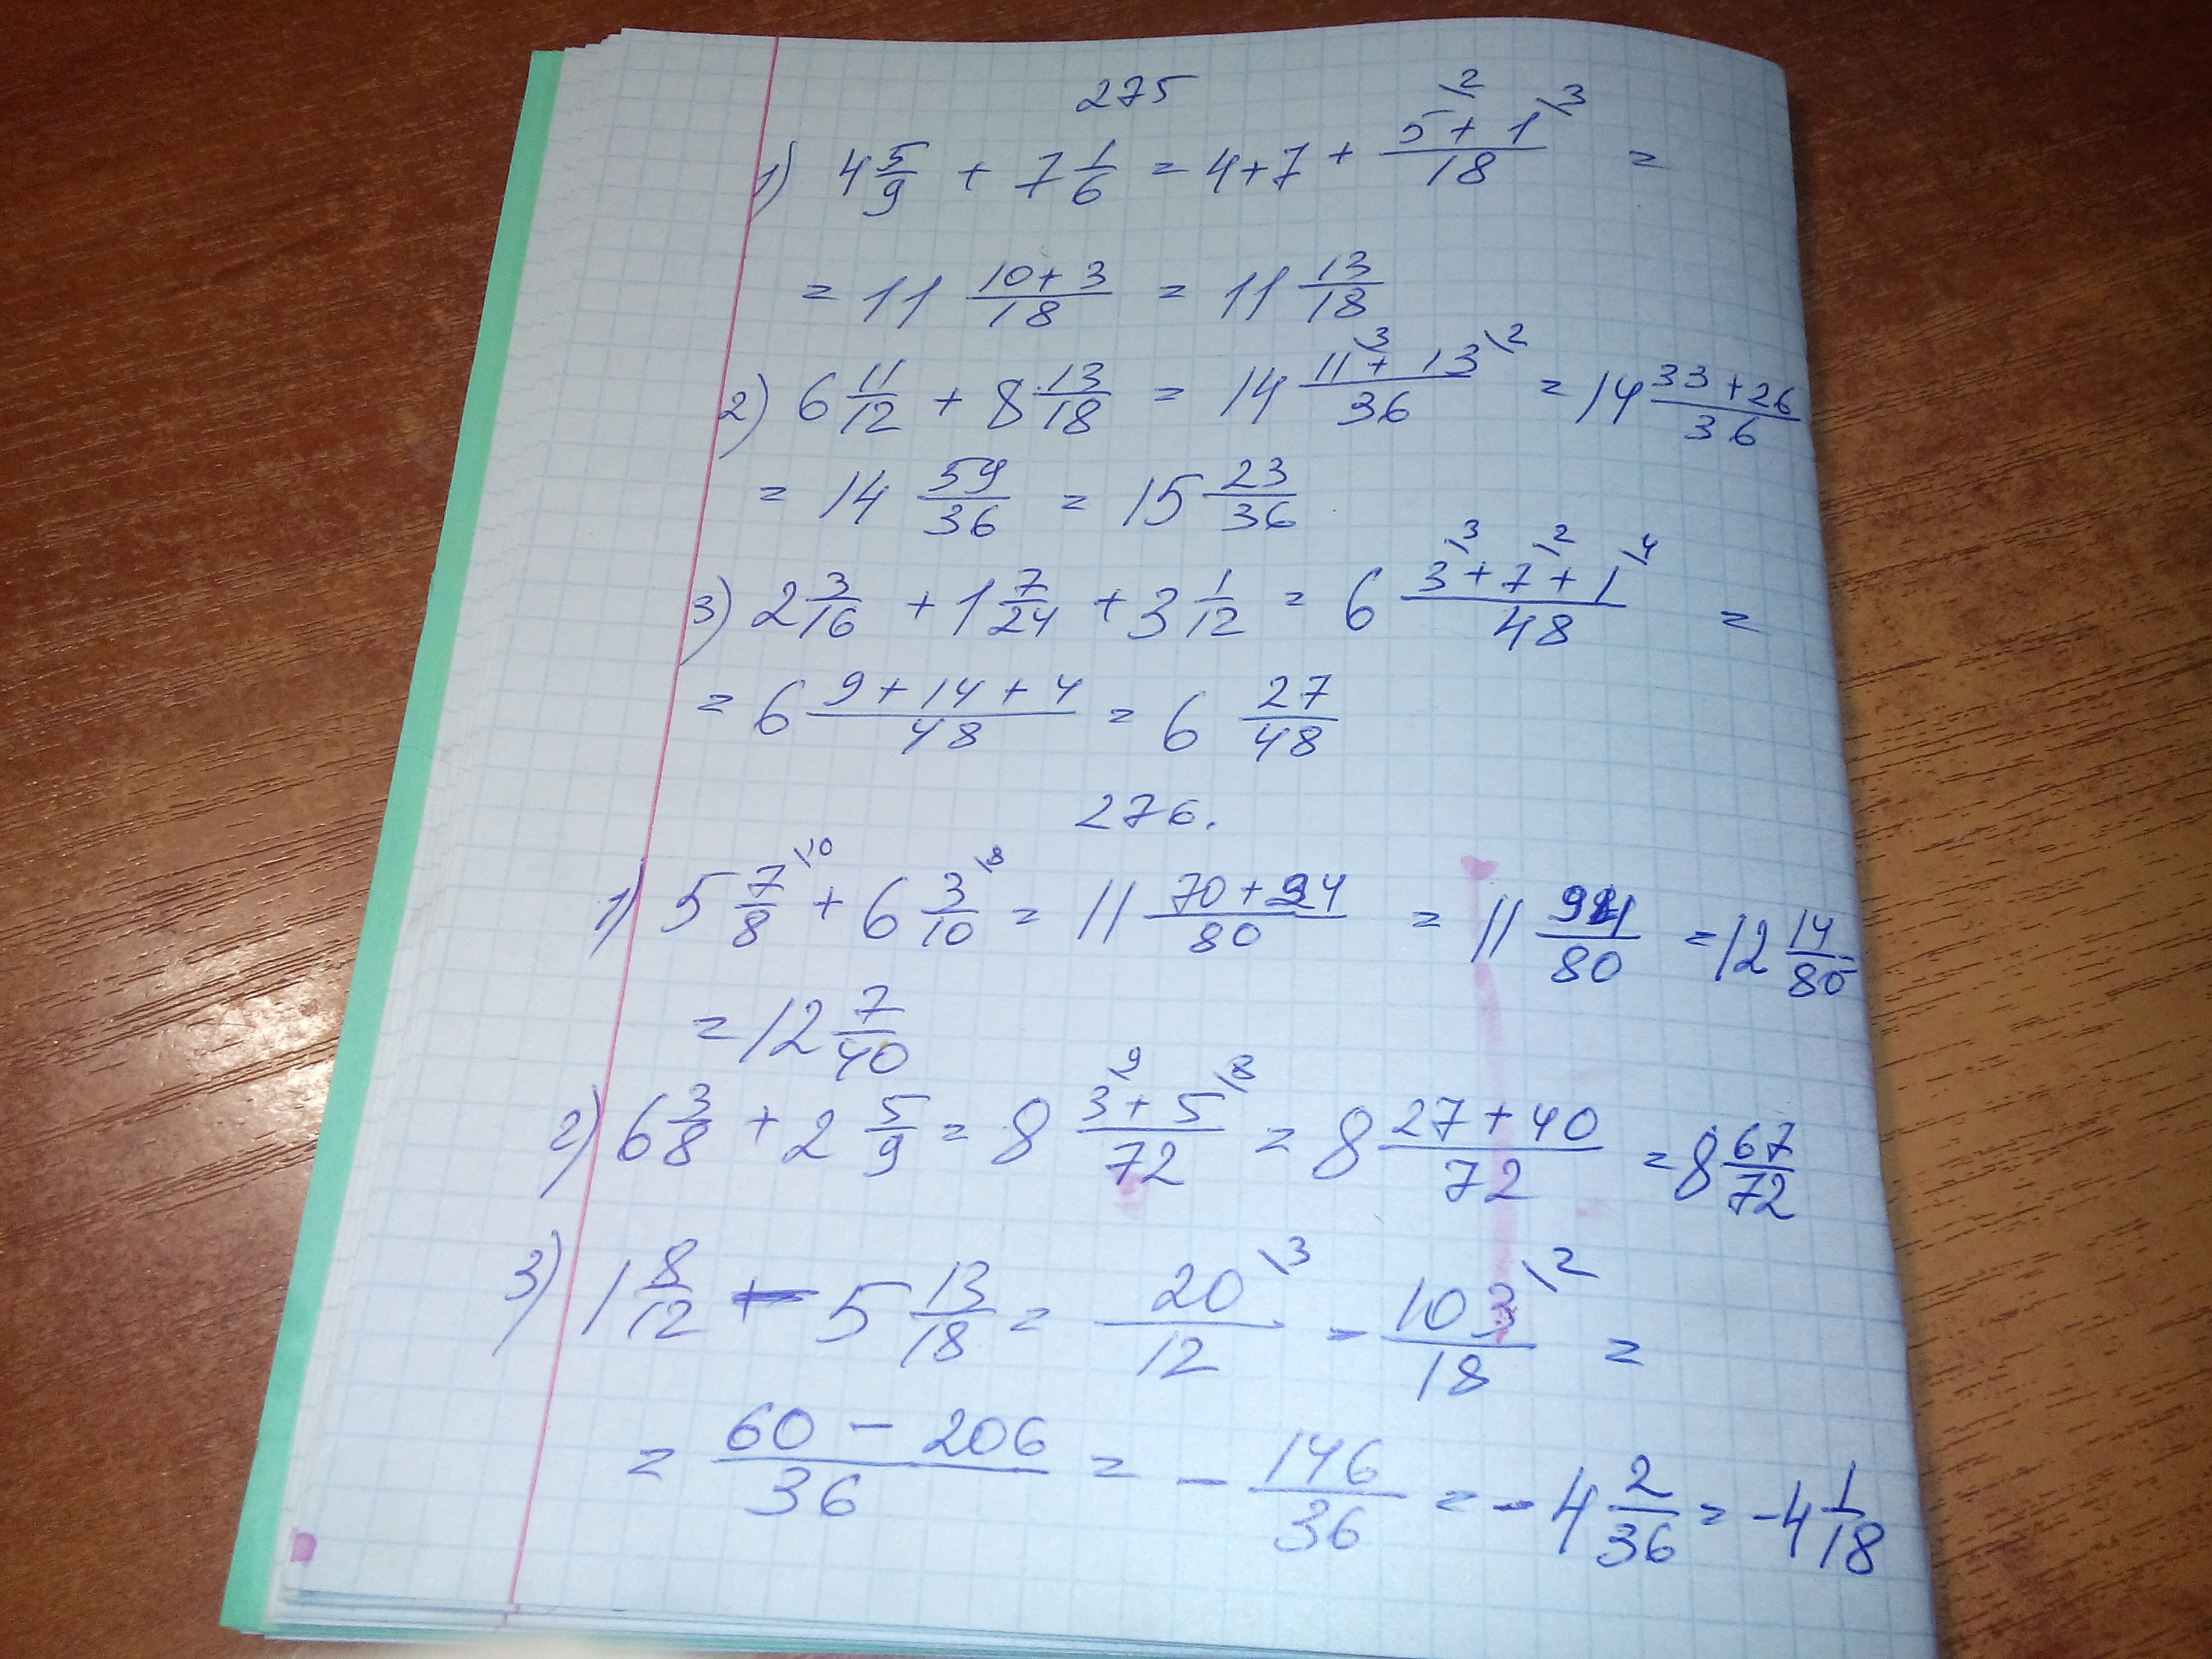 275
1) 4 5/9 + 7 1/6 = 4+7 + (5\2 + 1\3)/18 =
= 11 (10+3)/18 = 11 13/18
2) 6 11/12 + 8 13/18 = 14 (11\3 + 13\2)/36 = 14 (33+26)/36
= 14 59/36 = 15 23/36
3) 2 3/16 + 1 7/24 + 3 1/12 = 6 (3\3 + 7\2 + 1\4)/48 =
= 6 (9+14+4)/48 = 6 27/48
276.
1) 5 7/8\10 + 6 3/10\8 = 11 (70+24)/80 = 11 94/80 = 12 14/80 =
= 12 7/40
2) 6 3/8 + 2 5/9 = 8 (3\9 + 5\8)/72 = 8 (27+40)/72 = 8 67/72
3) 1 8/12 - 5 13/18 = 20/12\3 - 103/18\2 =
= (60 - 206)/36 = - 146/36 = - 4 2/36 = - 4 1/18